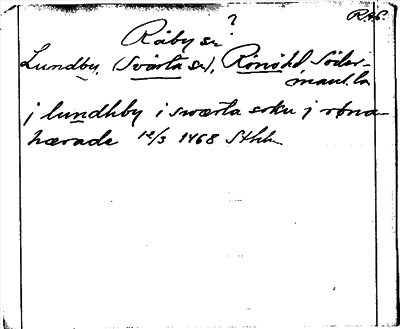 RA6.
Råby sn?
Lundby, (Svärta sn), Rönö hd Söder-
manl. la
j lundhby i swærta sokn j røna
hærade 12/3 1468 Sthlm